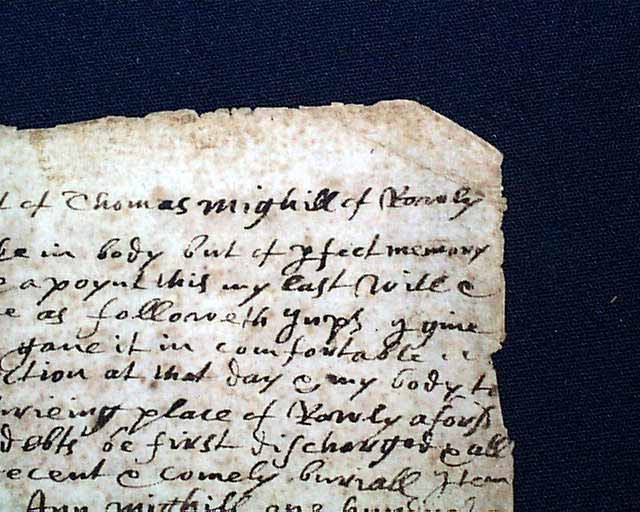 t of Thomas mighill of Rowly
ke in body but of pfect memory
e apoynt this my last Will &
e as followeth Imps. I give
gave it in comfortable
ction at that day & my body to
burieing place of Rowly afors
debts be first discharged & all
ecent & comely buriall Item
Ann mighill one hundred